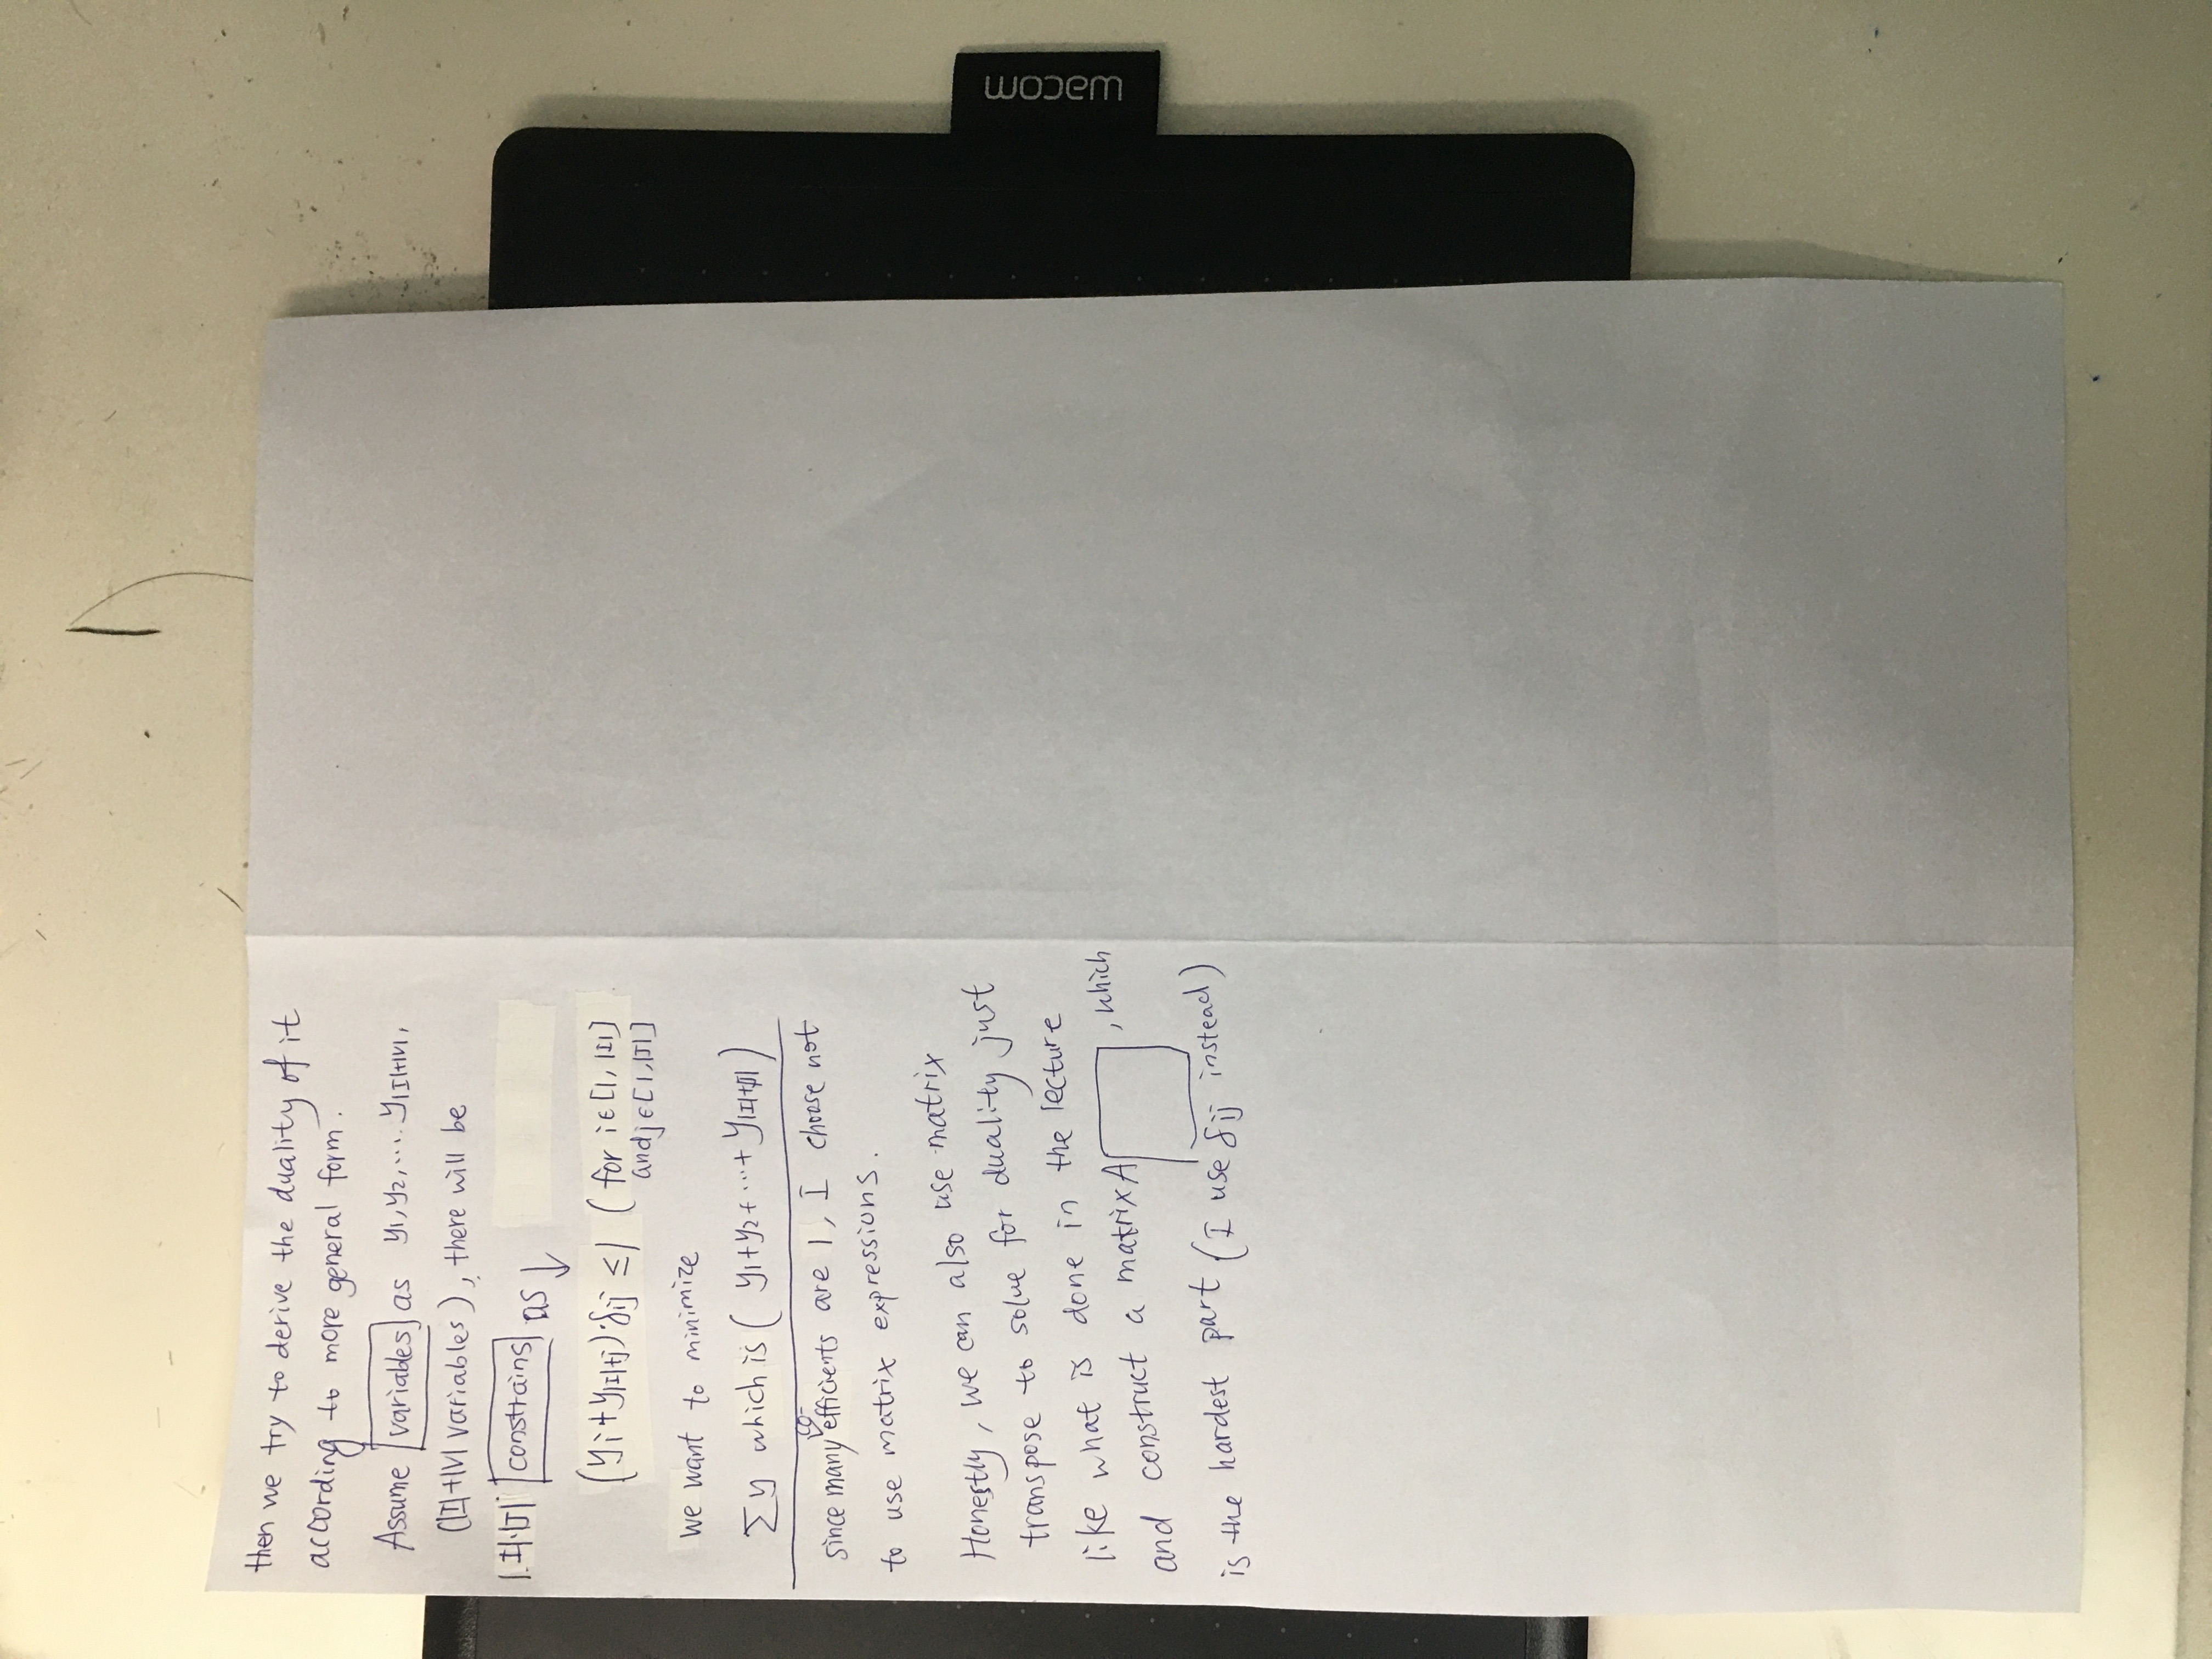 then we try to derive the duality of it
according to more general form.
Assume variables as y1, y2, .... y|I|+|V|,
(|I|+|V| variables), there will be
|I|·|J| constrains as ↓
(yi + y|I|+j)·δij ≤ 1 (for i∈[1, |I|]
and j∈[1, |J|]
we want to minimize
∑y which is ( y1+y2+...+ y|I|+|J| )
since many co-efficients are 1, I choose not
to use matrix expressions.
Honestly, we can also use matrix
transpose to solve for duality just
like what is done in the lecture
and construct a matrix A , which
is the hardest part ( I use δij instead)
wacom